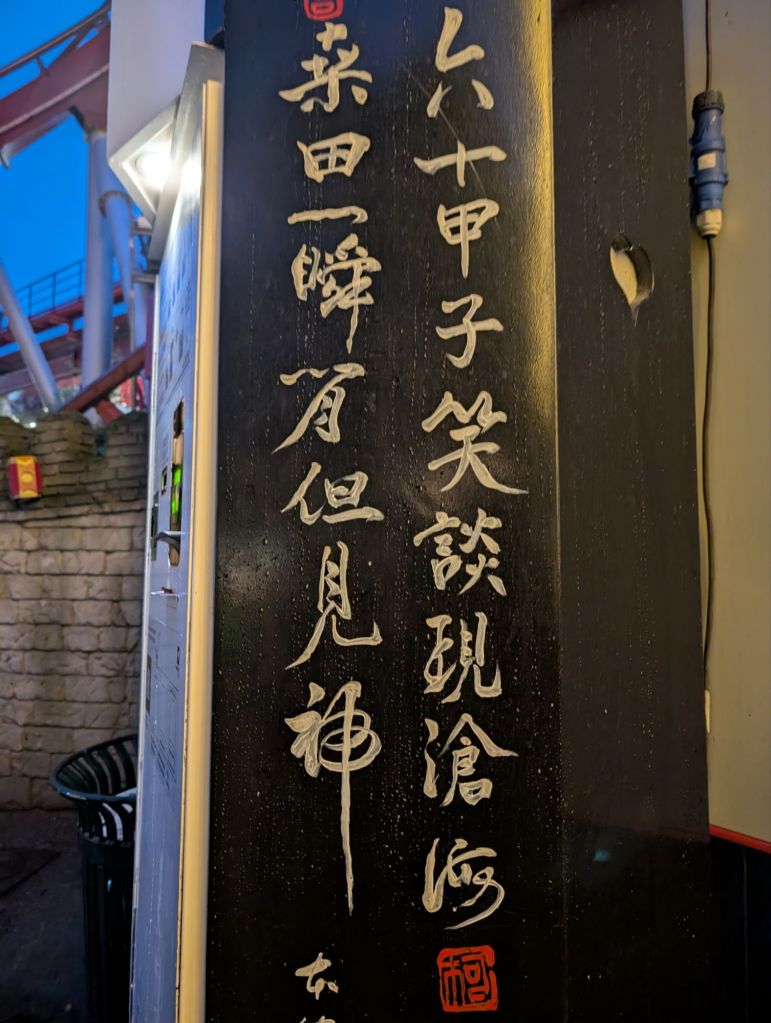 六十甲子笑談現滄海
桑田一瞬間但見神
本